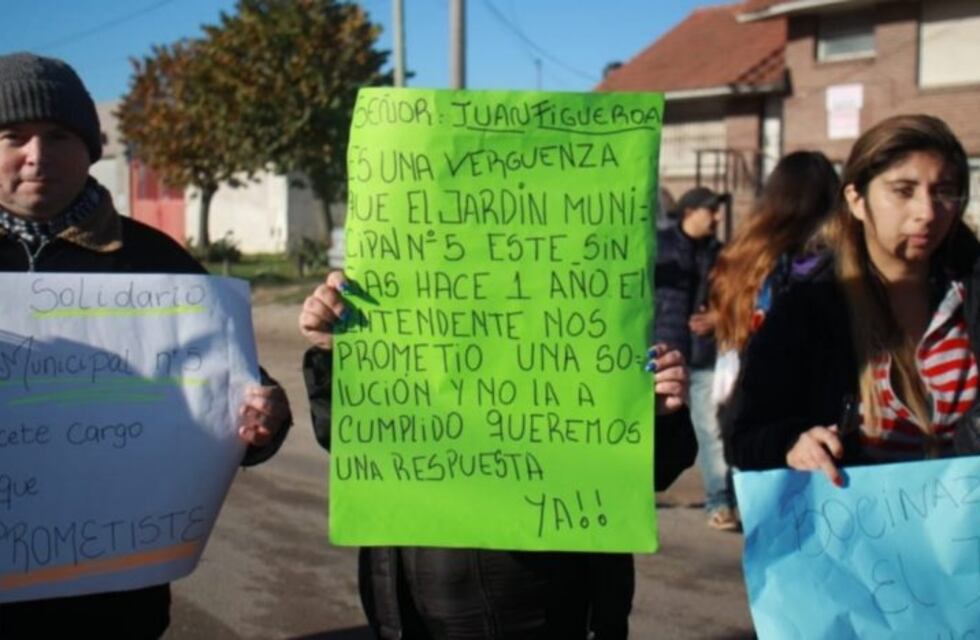 Solidario
Municipal n°5
cete cargo
que
PROMETISTE
SEÑOR: JUAN FIGUEROA
ES UNA VERGUENZA
QUE EL JARDIN MUNI-
CIPAL N°5 ESTE SIN
GAS HACE 1 AÑO El
INTENDENTE NOS
PROMETIO UNA SO-
LUCIÓN Y NO LA A
CUMPLIDO QUEREMOS
UNA RESPUESTA
YA!!
BOCINAZ
EL J